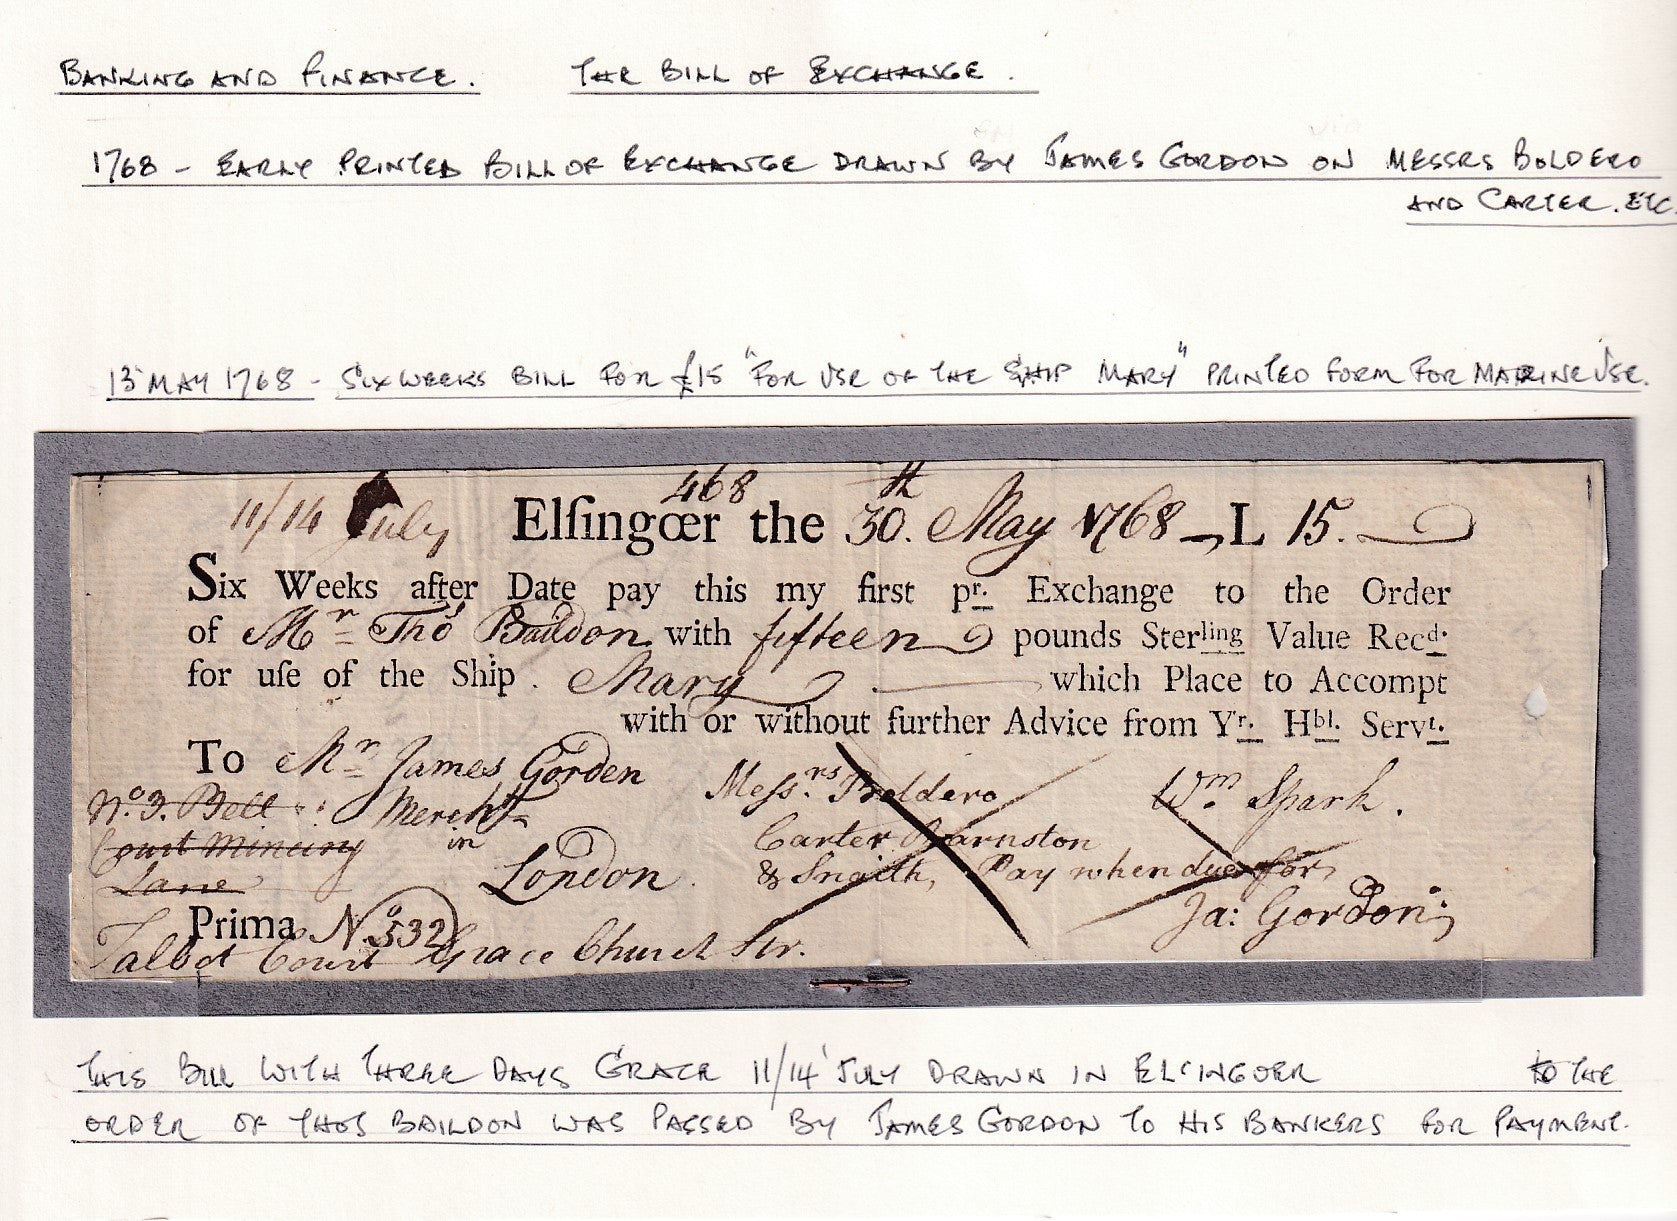 BANKING AND FINANCE. THE BILL OF EXCHANGE.
1768 - EARLY PRINTED BILL OF EXCHANGE DRAWN BY JAMES GORDON ON MESSRS BOLDERO
AND CARTER. ETC.
13 MAY 1768 - SIX WEEKS BILL FOR £15 "FOR USE OF THE SHIP MARY" PRINTED FORM FOR MARINE USE.
468
11/14 July Elſingœr the 30.th May 1768 L 15.
Six Weeks after Date pay this my first pr. Exchange to the Order
of Mr Thos Baildon with fifteen pounds Sterling Value Recd.
for uſe of the Ship Mary which Place to Accompt
with or without further Advice from Yr. Hbl. Servt.
To Mr James Gorden Messrs. Boldero Wm. Spark.
No. 3. Bell Mercht Carter Barnston
Court Mincing in & Snaith, Pay when due for
Lane London. Ja: Gordon:
Prima No 532
Talbot Court Grace Church Str.
THIS BILL WITH THREE DAYS GRACE 11/14 JULY DRAWN IN ELSINGOER TO THE
ORDER OF THOS BAILDON WAS PASSED BY JAMES GORDON TO HIS BANKERS FOR PAYMENT.